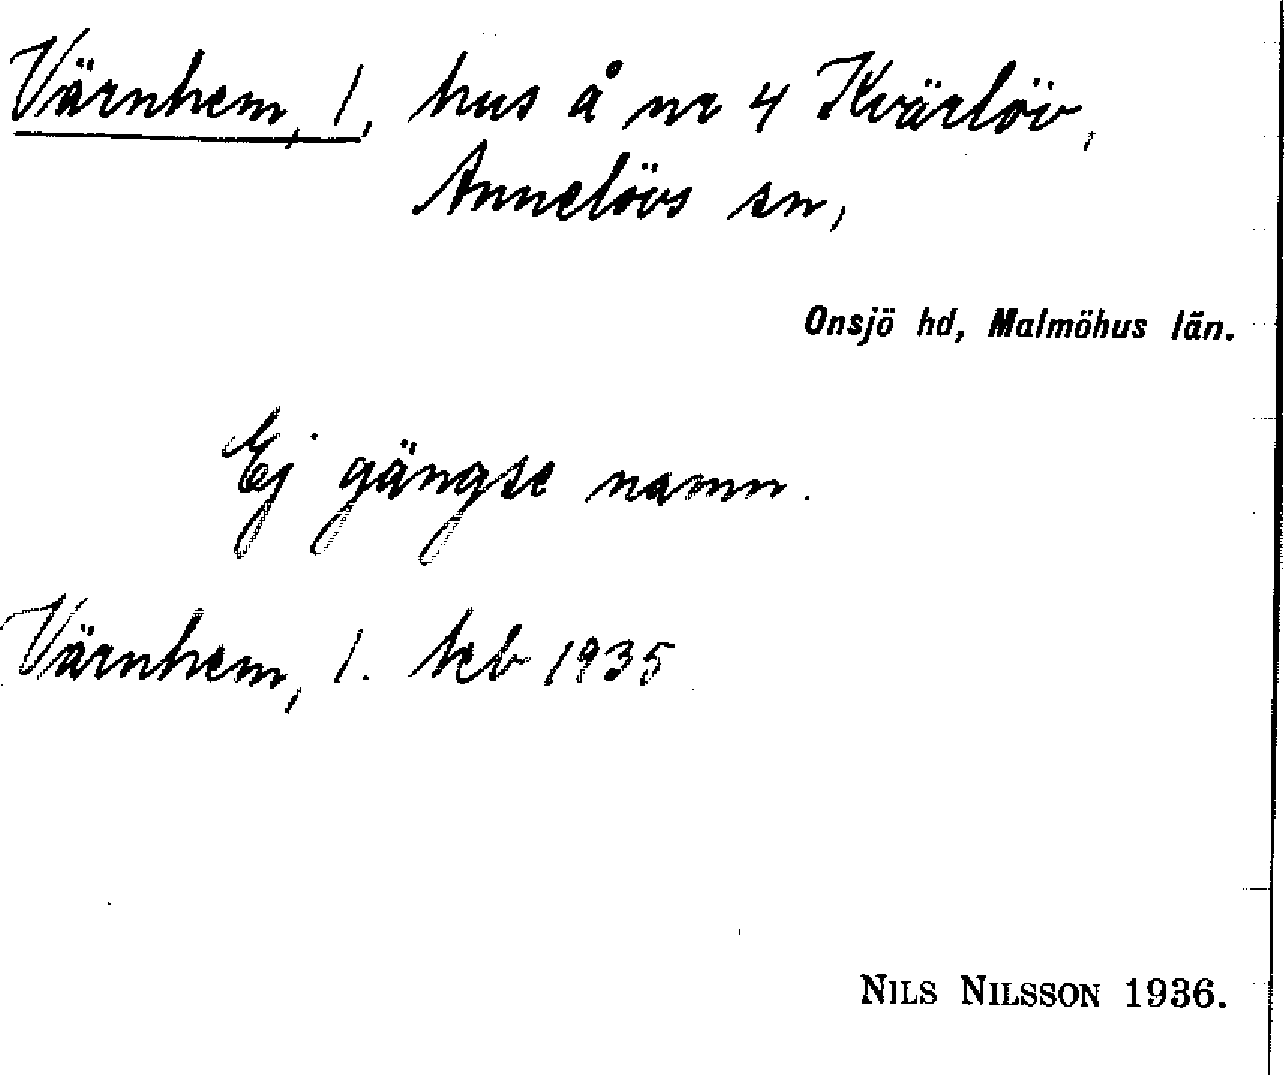 Värnhem, 1, hus å nr 4 Kvärlöv,
Annelövs sn,
Onsjö hd, Malmöhus län.
Ej gängse namn.
Värnhem, 1. kb 1935
NILS NILSSON 1936.